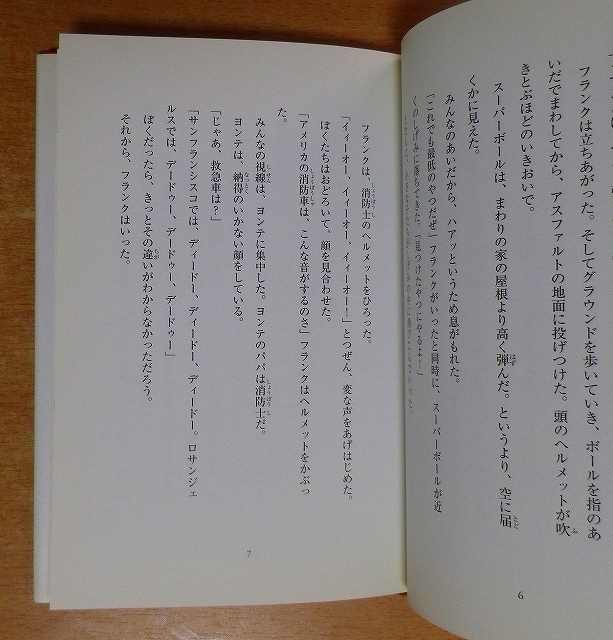 フランクは立ちあがった。そしてグラウンドを歩いていき、ボールを指のあ
いだでまわしてから、アスファルトの地面に投げつけた。頭のヘルメットが吹
きとぶほどのいきおいで。
スーパーボールは、まわりの家の屋根より高く弾んだ。というより、空に届
くかに見えた。
みんなのあいだから、ハアッというため息がもれた。
「これでも最低のやつだぜ」フランクがいったと同時に、スーパーボールが近
くのしげみに落ちてきた。「見つけたやつにやるよ！」
6
フランクは、消防士のヘルメットをひろった。
「イィーオー、イィーオー、イィーオー！」とつぜん、変な声をあげはじめた。
ぼくたちはおどろいて、顔を見合わせた。
「アメリカの消防車は、こんな音がするのさ」フランクはヘルメットをかぶっ
た。
みんなの視線は、ヨンテに集中した。ヨンテのパパは消防士だ。
ヨンテは、納得のいかない顔をしている。
「じゃあ、救急車は？」
「サンフランシスコでは、ディードー、ディードー、ディードー。ロサンジェ
ルスでは、デードゥー、デードゥー、デードゥー」
ぼくだったら、きっとその違いがわからなかっただろう。
それから、フランクはいった。
7